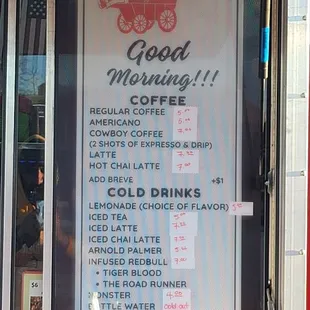 Good
Morning!!!
COFFEE
REGULAR COFFEE 5.00
AMERICANO 5.00
COWBOY COFFEE 7.00
(2 SHOTS OF EXPRESSO & DRIP)
LATTE
HOT CHAI LATTE
ADD BREVE +$1
COLD DRINKS
LEMONADE (CHOICE OF FLAVOR)
ICED TEA 5.00
ICED LATTE
ICED CHAI LATTE
ARNOLD PALMER
INFUSED REDBULL 7.00
• TIGER BLOOD
• THE ROAD RUNNER
MONSTER
BOTTLE WATER cold out
$6